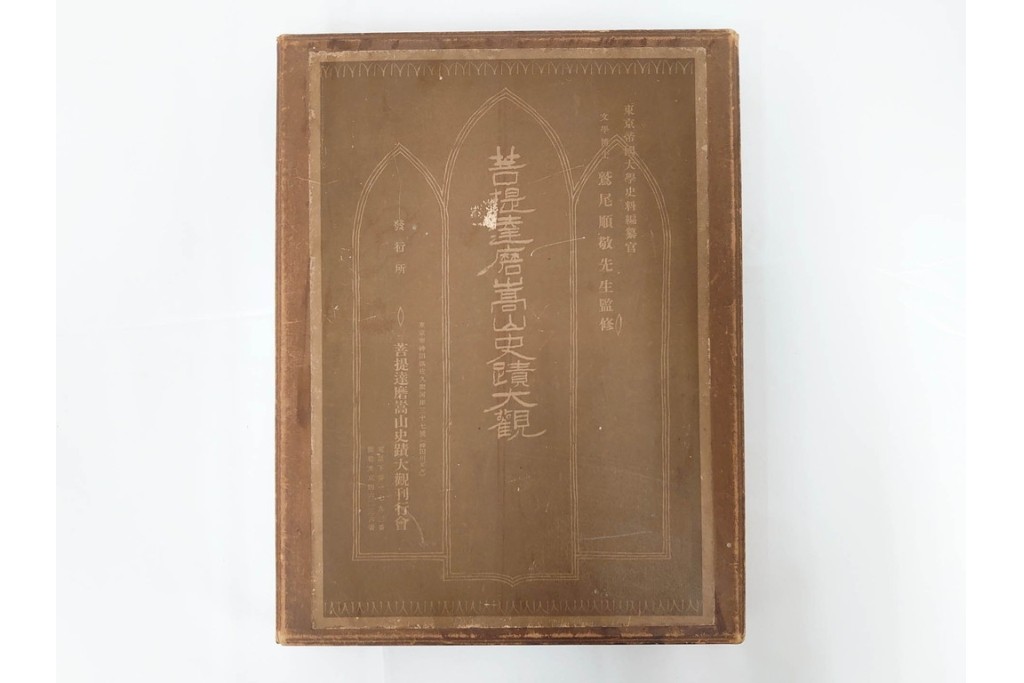 東京帝國大學史料編纂官
文學博士 鷲尾順敬先生監修
菩提達磨嵩山史蹟大觀
發行所
菩提達磨嵩山史蹟大觀刊行會